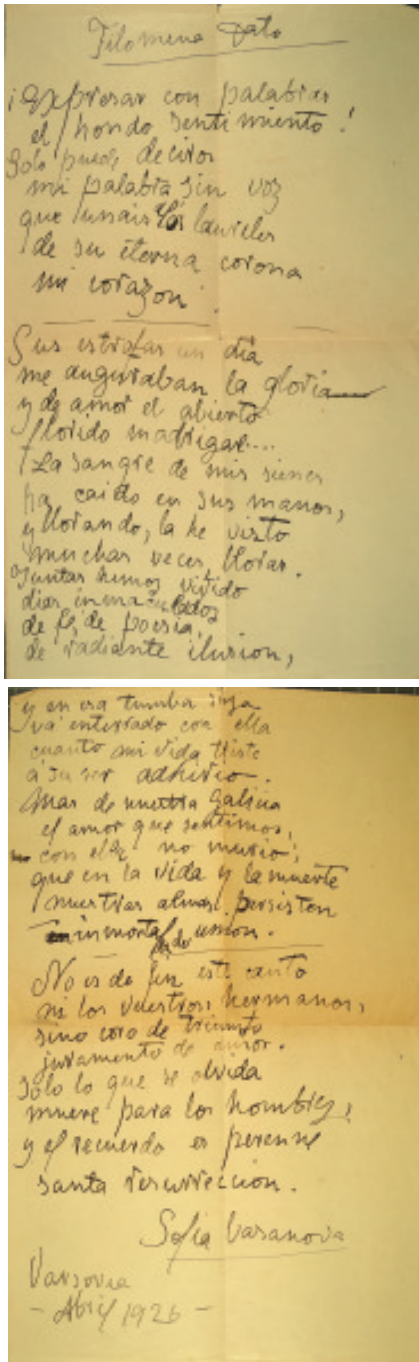 Filomena Dato
¡Expresar con palabras
el hondo sentimiento!
Solo puede deciros
mi palabra sin voz
que unais los laureles
de su eterna corona
mi corazon.
Sus estrofas un dia
me auguraban la gloria
y de amor el abierto
florido madrigal....
La sangre de mis sienes
ha caido en sus manos,
y llorando, la he visto
muchas veces, llorar.
Juntas hemos vivido
dias inmaculados
de fe, de poesia,
de radiante ilusion,
y en esa tumba suya
va enterrado con ella
cuanto mi vida triste
á su ser adhirio.
Mas de nuestra Galicia
el amor que sentimos,
con ella no murio;
que en la vida y la muerte
nuestras almas persisten
inmortal union.
No es de fin este canto
ni los vuestros, hermanos,
sino coro de triunfo
juramento de amor.
Sólo lo que se olvida
muere para los hombres,
y el recuerdo es perenne
santa resurreccion.
Sofia Casanova
Varsovia
- Abril 1926 -